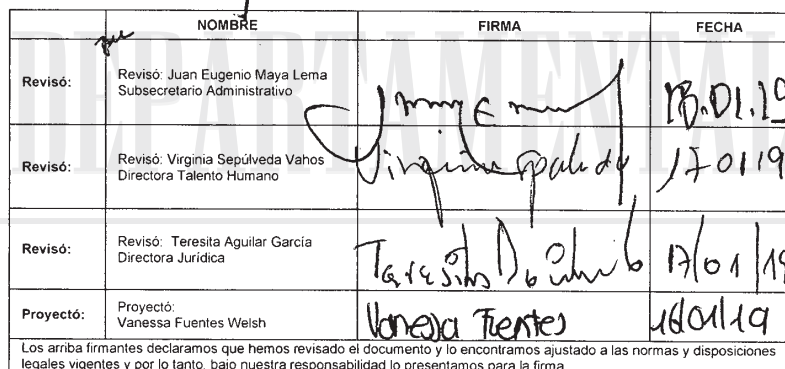 NOMBRE FIRMA FECHA
Revisó: Revisó: Juan Eugenio Maya Lema
Subsecretario Administrativo
18.01.19
Revisó: Revisó: Virginia Sepúlveda Vahos
Directora Talento Humano
Virginia 170119
Revisó: Revisó: Teresita Aguilar García
Directora Jurídica
Teresita 17/01/19
Proyectó: Proyectó:
Vanessa Fuentes Welsh
Vanessa Fuentes 16/01/19
Los arriba firmantes declaramos que hemos revisado el documento y lo encontramos ajustado a las normas y disposiciones
legales vigentes y por lo tanto, bajo nuestra responsabilidad lo presentamos para la firma.
DEPARTAMENTAL